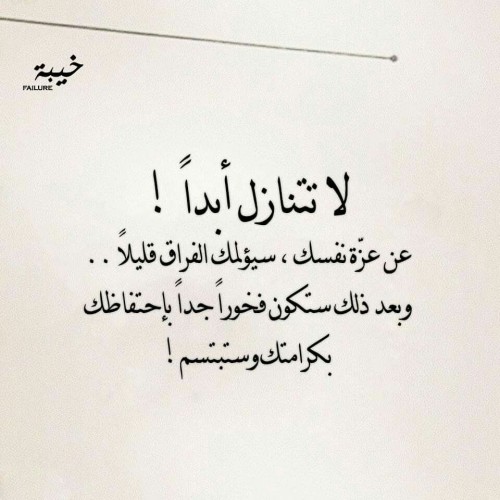 خيبة
FAILURE
لا تتنازل أبداً !
عن عزّة نفسك ، سيؤلمك الفراق قليلاً . .
وبعد ذلك ستكون فخوراً جداً بإحتفاظك
بكرامتك وستبتسم !